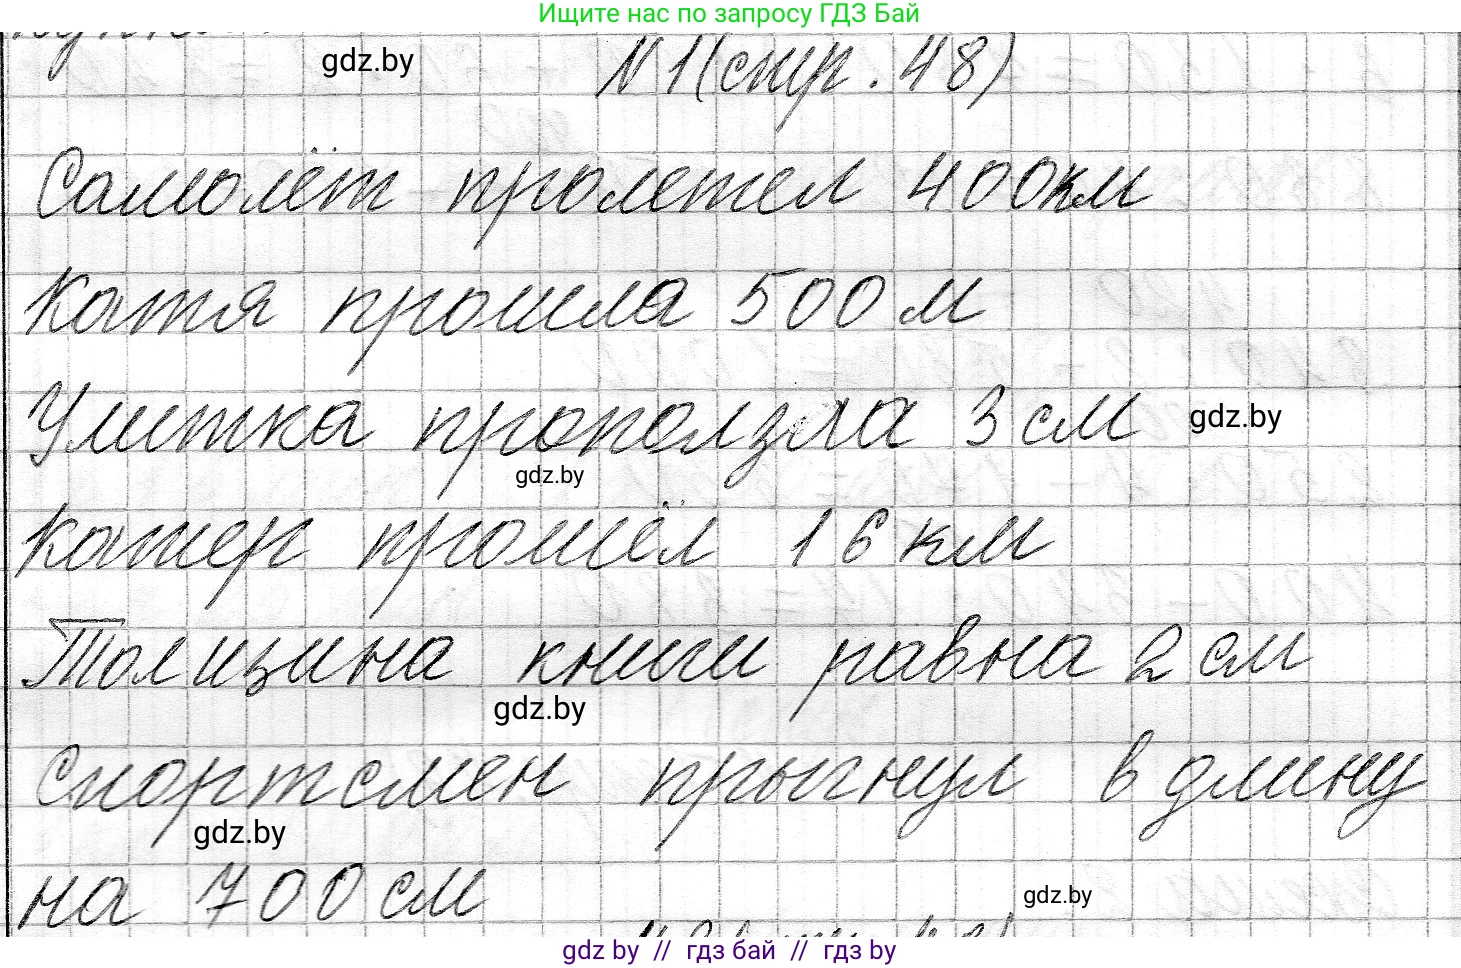 Ищите нас по запросу ГДЗ Бай
gdz.by
№1(стр. 48)
Самолёт пролетел 400км
Катя прошла 500 м
Улитка проползла 3 см
gdz.by
gdz.by
Катер прошёл 16 км
Толщина книги равна 2 см
gdz.by
Спортсмен прыгнул в длину
gdz.by
на 700 см
gdz.by
gdz by // гдз бай // гдз by